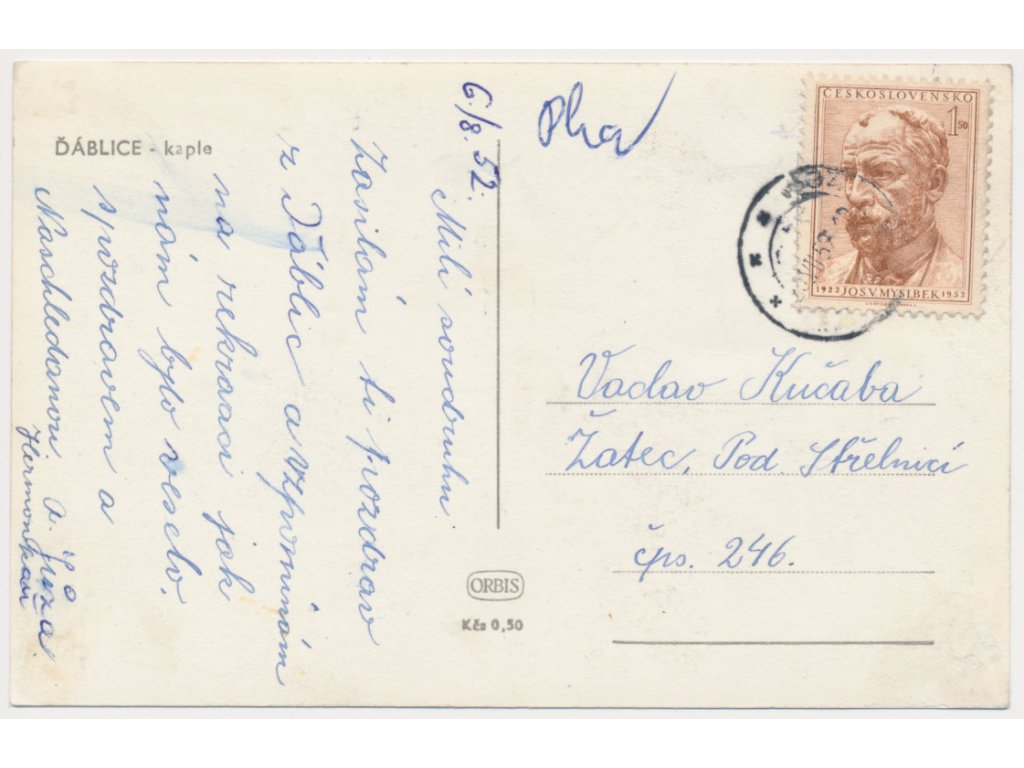 ĎÁBLICE - kaple
6/8. 52.
Milí soudruhu
Zasilám ti pozdrav
z Ďáblic a vzpomínám
na rekraaci jak
nám bylo veselo.
spozdravem a
Naschledanou. a. Jirza
Hermonkai
ORBIS
Kčs 0,50
ČESKOSLOVENSKO
1 50
1922 JOS.V.MYSLBEK 1952
Vaclav Kučaba
Žatec, Pod. Střelnicí
čps. 246.